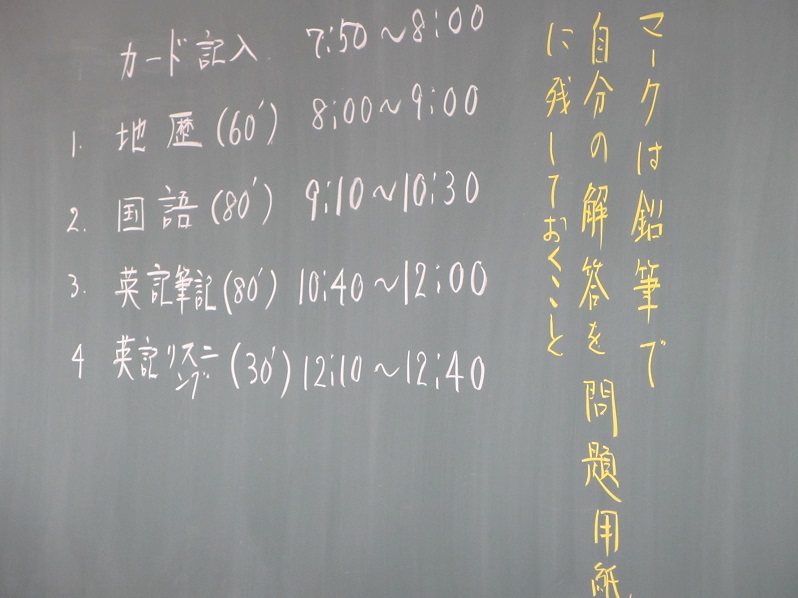 カード記入 7:50～8:00
1. 地歴(60′) 8:00～9:00
2. 国語(80′) 9:10～10:30
3. 英記筆記(80′) 10:40～12:00
4 英記リスニング(30′) 12:10～12:40
マークは鉛筆で
自分の解答を問題用紙
に残しておくこと